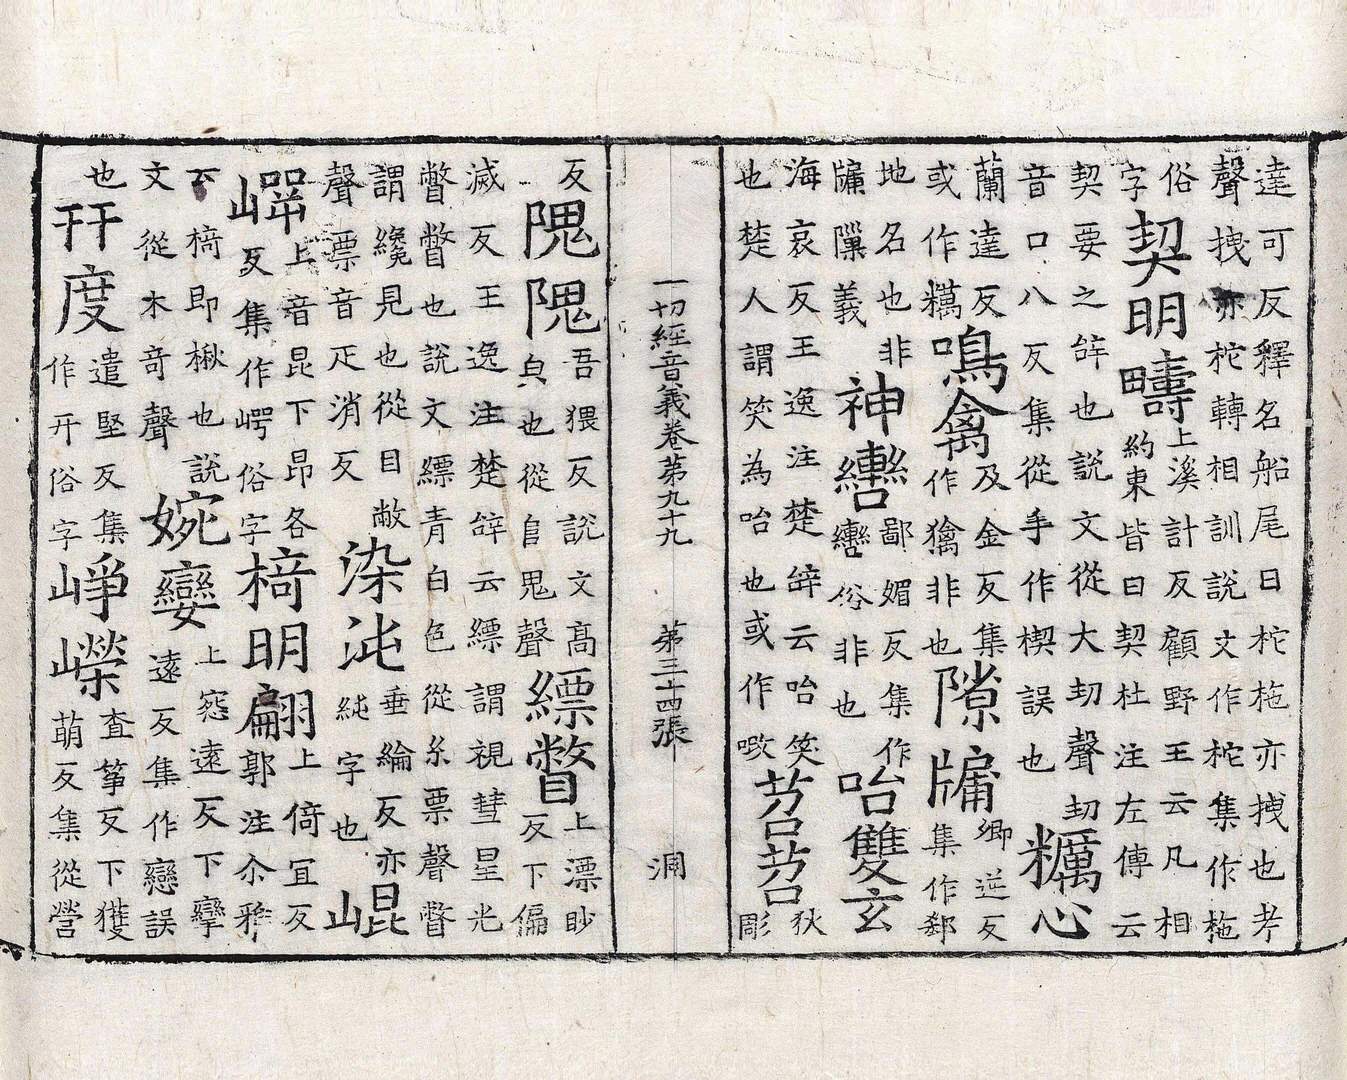 達可反釋名船尾曰柁柂亦拽也考
聲拽亦柁轉相訓說文作柁集作柂
俗字契明疇上溪計反顧野王云凡相約束皆曰契杜注左傳云
契要之辭也說文從大㓞聲㓞音口八反集從手作楔誤也糲心
蘭達反或作糲鳴禽及金反集作擒非也隙牗卿逆反集作郄
地名也非牗隟義神轡鄙媚反集作轡俗非也咍雙玄
海哀反王逸注楚辭云咍笑也楚人謂笑為咍也或作苕苕狄彫
一切經音義卷第九十九 第三十四張 洞
反隗隗吾猥反說文高㒵也從𨸏鬼聲縹瞥上漂眇反下偏
滅反王逸注楚辭云縹謂視彗星光瞥瞥也說文縹青白色從糸票聲瞥
謂纔見也從目敝聲票音疋消反染沘垂綸反亦純字也崐
㟧上音昆下昂各反集作崿俗字椅明翩上倚宜反郭注尒雅
下椅即楸也說文從木奇聲婉孌上惌遠反下攣遠反集作戀誤
也幵度遣堅反集作开俗字崢嶸查箏反下獲萌反集從營